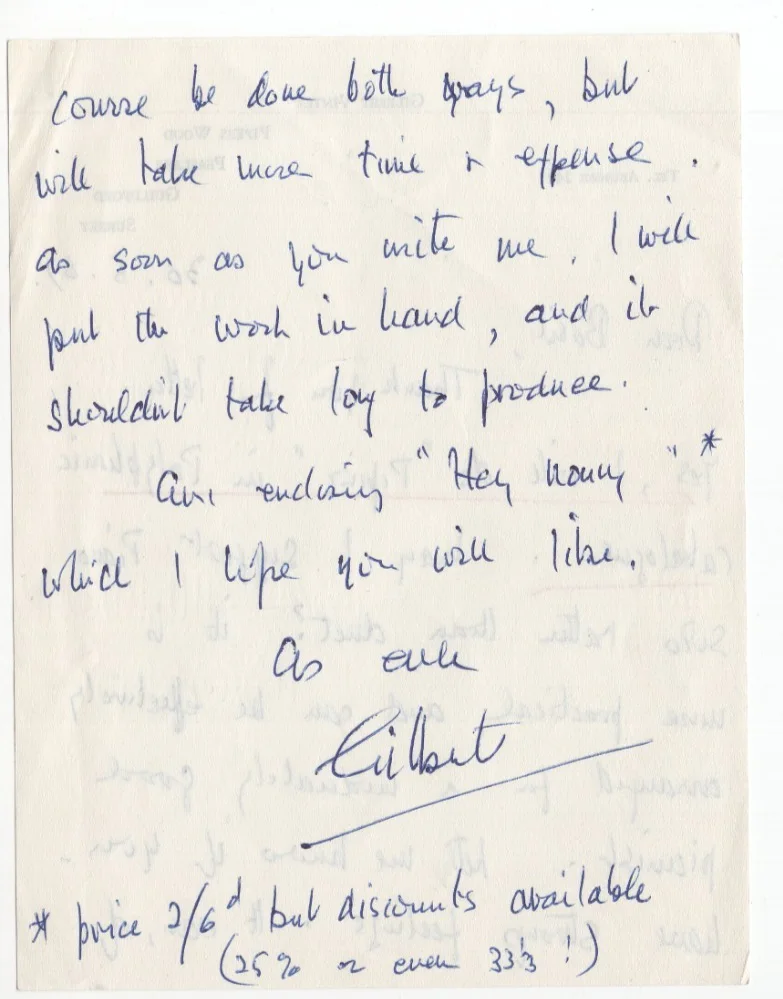 course be done both ways, but
will take more time & expense.
as soon as you write me, I will
put the work in hand, and it
shouldn't take long to produce.
Am enclosing "Hey nonny" *
which I hope you will like.
As ever
Gilbert
* price 2/6d but discounts available
(25% or even 33⅓ !)